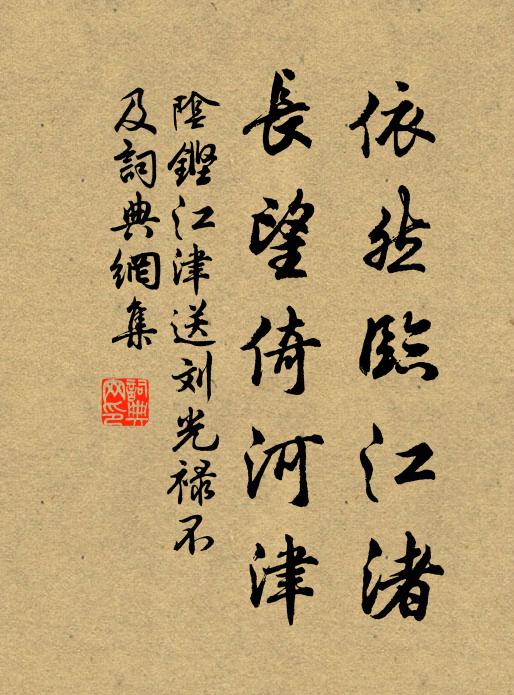 依然臨江渚
長望倚河津
陰鏗江津送刘光禄不
及詞典網集
詞典
網印